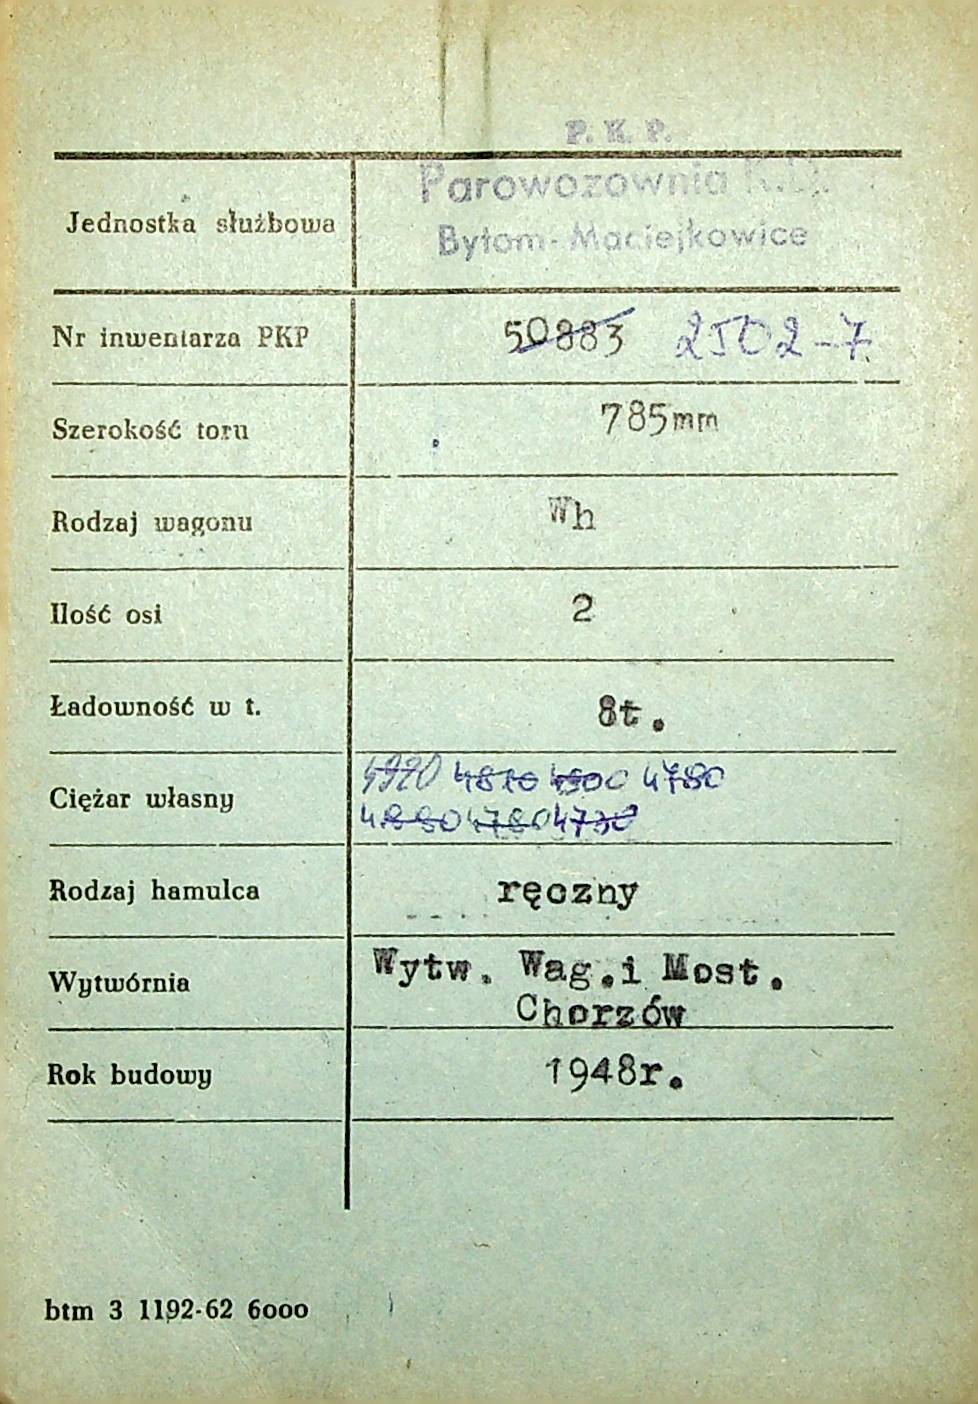 P. K. P.
Jednostka służbowa Parowozownia K.D.
Bytom-Maciejkowice
Nr inwentarza PKP 50883 2502-7
Szerokość toru 785mm
Rodzaj wagonu Wh
Ilość osi 2
Ładowność w t. 8t.
Ciężar własny 4810 4900 4780
4880 4780 4730
Rodzaj hamulca ręczny
Wytwórnia Wytw. Wag.i Most.
Chorzów
Rok budowy 1948r.
btm 3 1192-62 6000